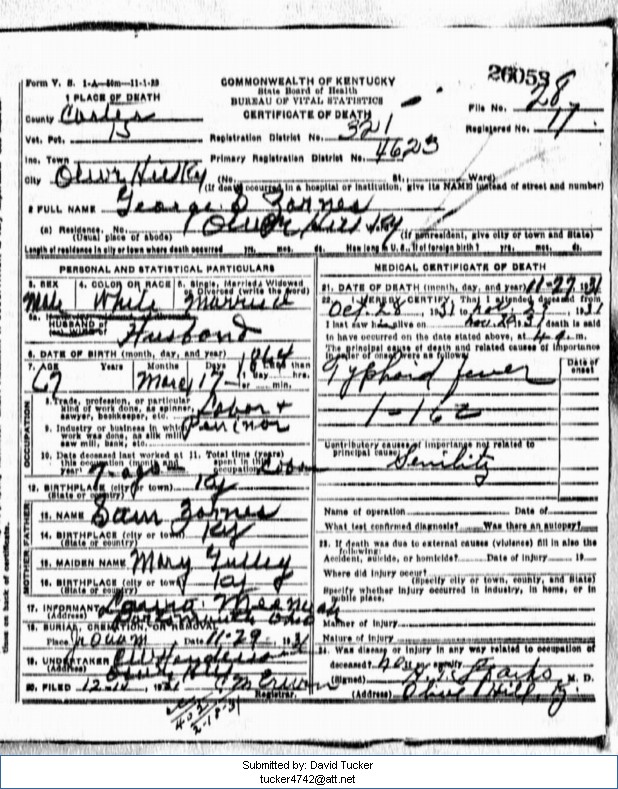 26053
Form V. S. 1-A
COMMONWEALTH OF KENTUCKY
State Board of Health
BUREAU OF VITAL STATISTICS
CERTIFICATE OF DEATH
1 PLACE OF DEATH
File No. 28
County Carter
Registered No. 17
Vot. Pct. 15
Registration District No. 321
Inc. Town
Primary Registration District No. 4623
City Olive Hill Ky (No. St., Ward)
(If death occurred in a hospital or institution, give its NAME instead of street and number)
2 FULL NAME George D Zornes
(a) Residence. No. Olive Hill Ky
(Usual place of abode) (If nonresident, give city or town and State)
Length of residence in city or town where death occurred yrs. mos. ds. How long in U. S., if of foreign birth? yrs. mos. ds.
PERSONAL AND STATISTICAL PARTICULARS
3. SEX 4. COLOR OR RACE 5. Single, Married, Widowed
or Divorced (write the word)
Male White Married
HUSBAND of
Husband
6. DATE OF BIRTH (month, day, and year) 1864
7. AGE Years Months Days
67
8. Trade, profession, or particular
kind of work done, as spinner,
sawyer, bookkeeper, etc.
9. Industry or business in which
work was done, as silk mill,
saw mill, bank, etc.
10. Date deceased last worked at 11. Total time (years)
this occupation (month and spent in this
year) occupation
OCCUPATION
12. BIRTHPLACE (city or town) Ky
(State or country)
13. NAME Sam Zornes
14. BIRTHPLACE (city or town) Ky
(State or country)
15. MAIDEN NAME Mary
16. BIRTHPLACE (city or town) Ky
(State or country)
MOTHER FATHER
17. INFORMANT
(Address) Ohio
18. BURIAL, CREMATION, OR REMOVAL
Place Date 11-29 1931
19. UNDERTAKER Henderson
(Address)
20. FILED 12-14, 1931
Registrar.
MEDICAL CERTIFICATE OF DEATH
21. DATE OF DEATH (month, day, and year) 11-27 1931
22. I HEREBY CERTIFY, That I attended deceased from
Oct. 28, 1931 to Nov. 27, 1931
I last saw h alive on 1931 death is said
to have occurred on the date stated above, at 4 a. m.
The principal cause of death and related causes of importance
in order of onset were as follows:
Date of
onset
Typhoid fever
1-16
Contributory causes of importance not related to
principal cause:
Senility
Name of operation Date of
What test confirmed diagnosis? Was there an autopsy?
23. If death was due to external causes (violence) fill in also the
following:
Accident, suicide, or homicide? Date of injury 19
Where did injury occur?
(Specify city or town, county, and State)
Specify whether injury occurred in industry, in home, or in
public place.
Manner of injury
Nature of injury
24. Was disease or injury in any way related to occupation of
deceased? specify
(Signed) Sparks M. D.
(Address) Olive Hill, Ky.
Submitted by: David Tucker
tucker4742@att.net